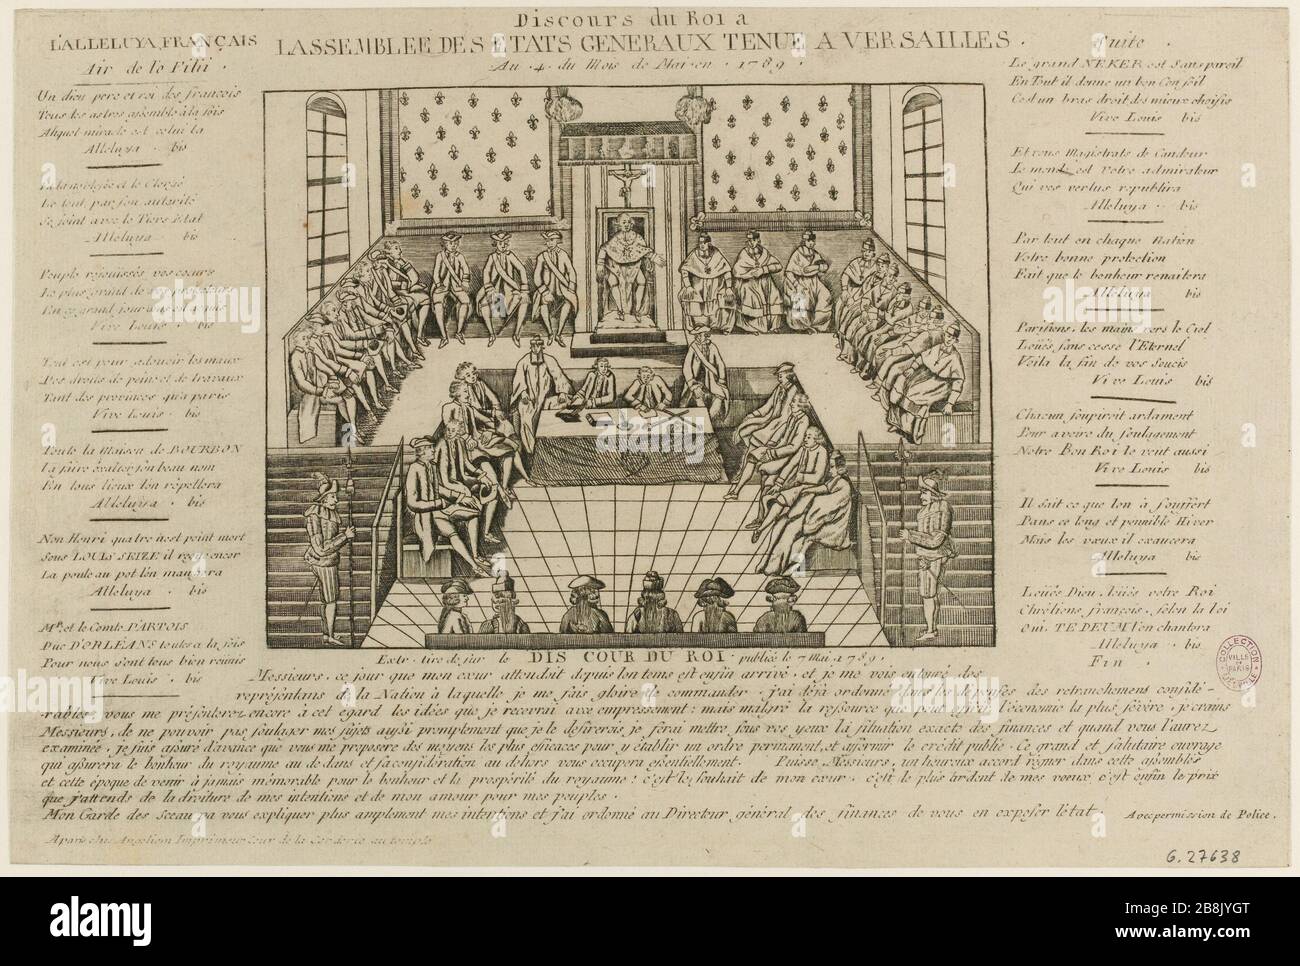 Discours du Roi a
LASSEMBLEE DES ETATS GENERAUX TENUE A VERSAILLES.
Au .4. du Mois de Mai en . 1789.
L'ALLELUYA FRANÇAIS
Air de lo Filii.
Un dieu pere et roi des francois
Tous les astres assemble à la fois
Alleluya . bis
Le tout par son autorité
Se joint avec le Tiers Etat
Alleluya . bis
Peuple rejouissés vos coeurs
Vive Louis . bis
Tout est pour adoucir les maux
Des droits de peine et de travaux
Tant des provinces qu'a paris
Vive Louis . bis
Toute la Maison de BOURBON
La faire exalter son beau nom
En tous lieux l'on répellera
Alleluya . bis
Non Henri quatre n'est point mort
Sous LOUIS SEIZE il regne encor
La poule au pot l'on mangera
Alleluya . bis
Mr. et le Comte D'ARTOIS
Duc D'ORLEANS toutes a la fois
Pour nous sont tous bien reunis
Vive Louis . bis
Suite .
Le grand NEKER est Sans pareil
En Tout il donne un bon Conseil
C'est un bras droit des mieux choisis
Vive Louis bis
Et vous Magistrats de Candeur
Le monde est votre admirateur
Qui vos vertus republira
Alleluya . bis
Par tout en chaque Nation
Votre bonne protection
Fait que le bonheur renaitera
Alleluya bis
Parisiens, les mains vers le Ciel
Loüés sans cesse l'Eternel
Voila la fin de vos Soucis
Vive Louis bis
Chacun soupiroit ardament
Pour avoire du soulagement
Notre Bon Roi le veut aussi
Vive Louis bis
Il sait ce que lon à souffert
Dans ce long et pennible Hiver
Mais les vœux il exaucera
Alleluya bis
Loüés Dieu, loüés votre Roi
Chrétiens, françois, selon la loi
Oui, TE DEUM l'on chantera
Alleluya bis
Fin .
Extr. tire de sur le DISCOUR DU ROI . publié le 7 Mai 1789.
Messieurs, ce jour que mon cœur attendoit depuis lon tems est enfin arrivé, et je me vois entouré des
représentans de la Nation à laquelle je me fais gloire de commander . j'ai déjà ordonné dans les dépenses des retranchemens considé-
rables; vous me présenterez encore à cet égard les idées que je recevrai avec empressement: mais malgré la ressource que peut offrir l'économie la plus sévère, je crains
Messieurs, de ne pouvoir pas soulager mes sujets aussi promplement que je le désirerois, je ferai mettre sous vos yeux la situation exacte des finances et quand vous l'aurez
examinée, je suis assuré d'avance que vous me proposere des moyens les plus efficaces pour y établir un ordre permanent, et affermir le crédit public. Ce grand et salutaire ouvrage
qui assurera le bonheur du royaume au dedans et sa considération au dehors vous occupera essentiellement. Puisse, Messieurs, un heureux accord régner dans cette assemblée
et cette époque de venir à jamais mémorable pour le bonheur et la prospérité du royaume; c'est le souhait de mon cœur, c'est le plus ardent de mes voeux c'est enfin le prix
que j'attends de la droiture de mes intentions et de mon amour pour mes peuples .
Mon Garde des Sceau va vous expliquer plus amplement mes intentions et j'ai ordonné au Directeur général des finances de vous en exposer l'état. Avec permission de Police.
A paris chez Angeliom Imprimeur Cour de la Corderie au temple
COLLECTION
VILLE DE PARIS
G. 27638
alamy
Image ID: 2B8JYGT
www.alamy.com